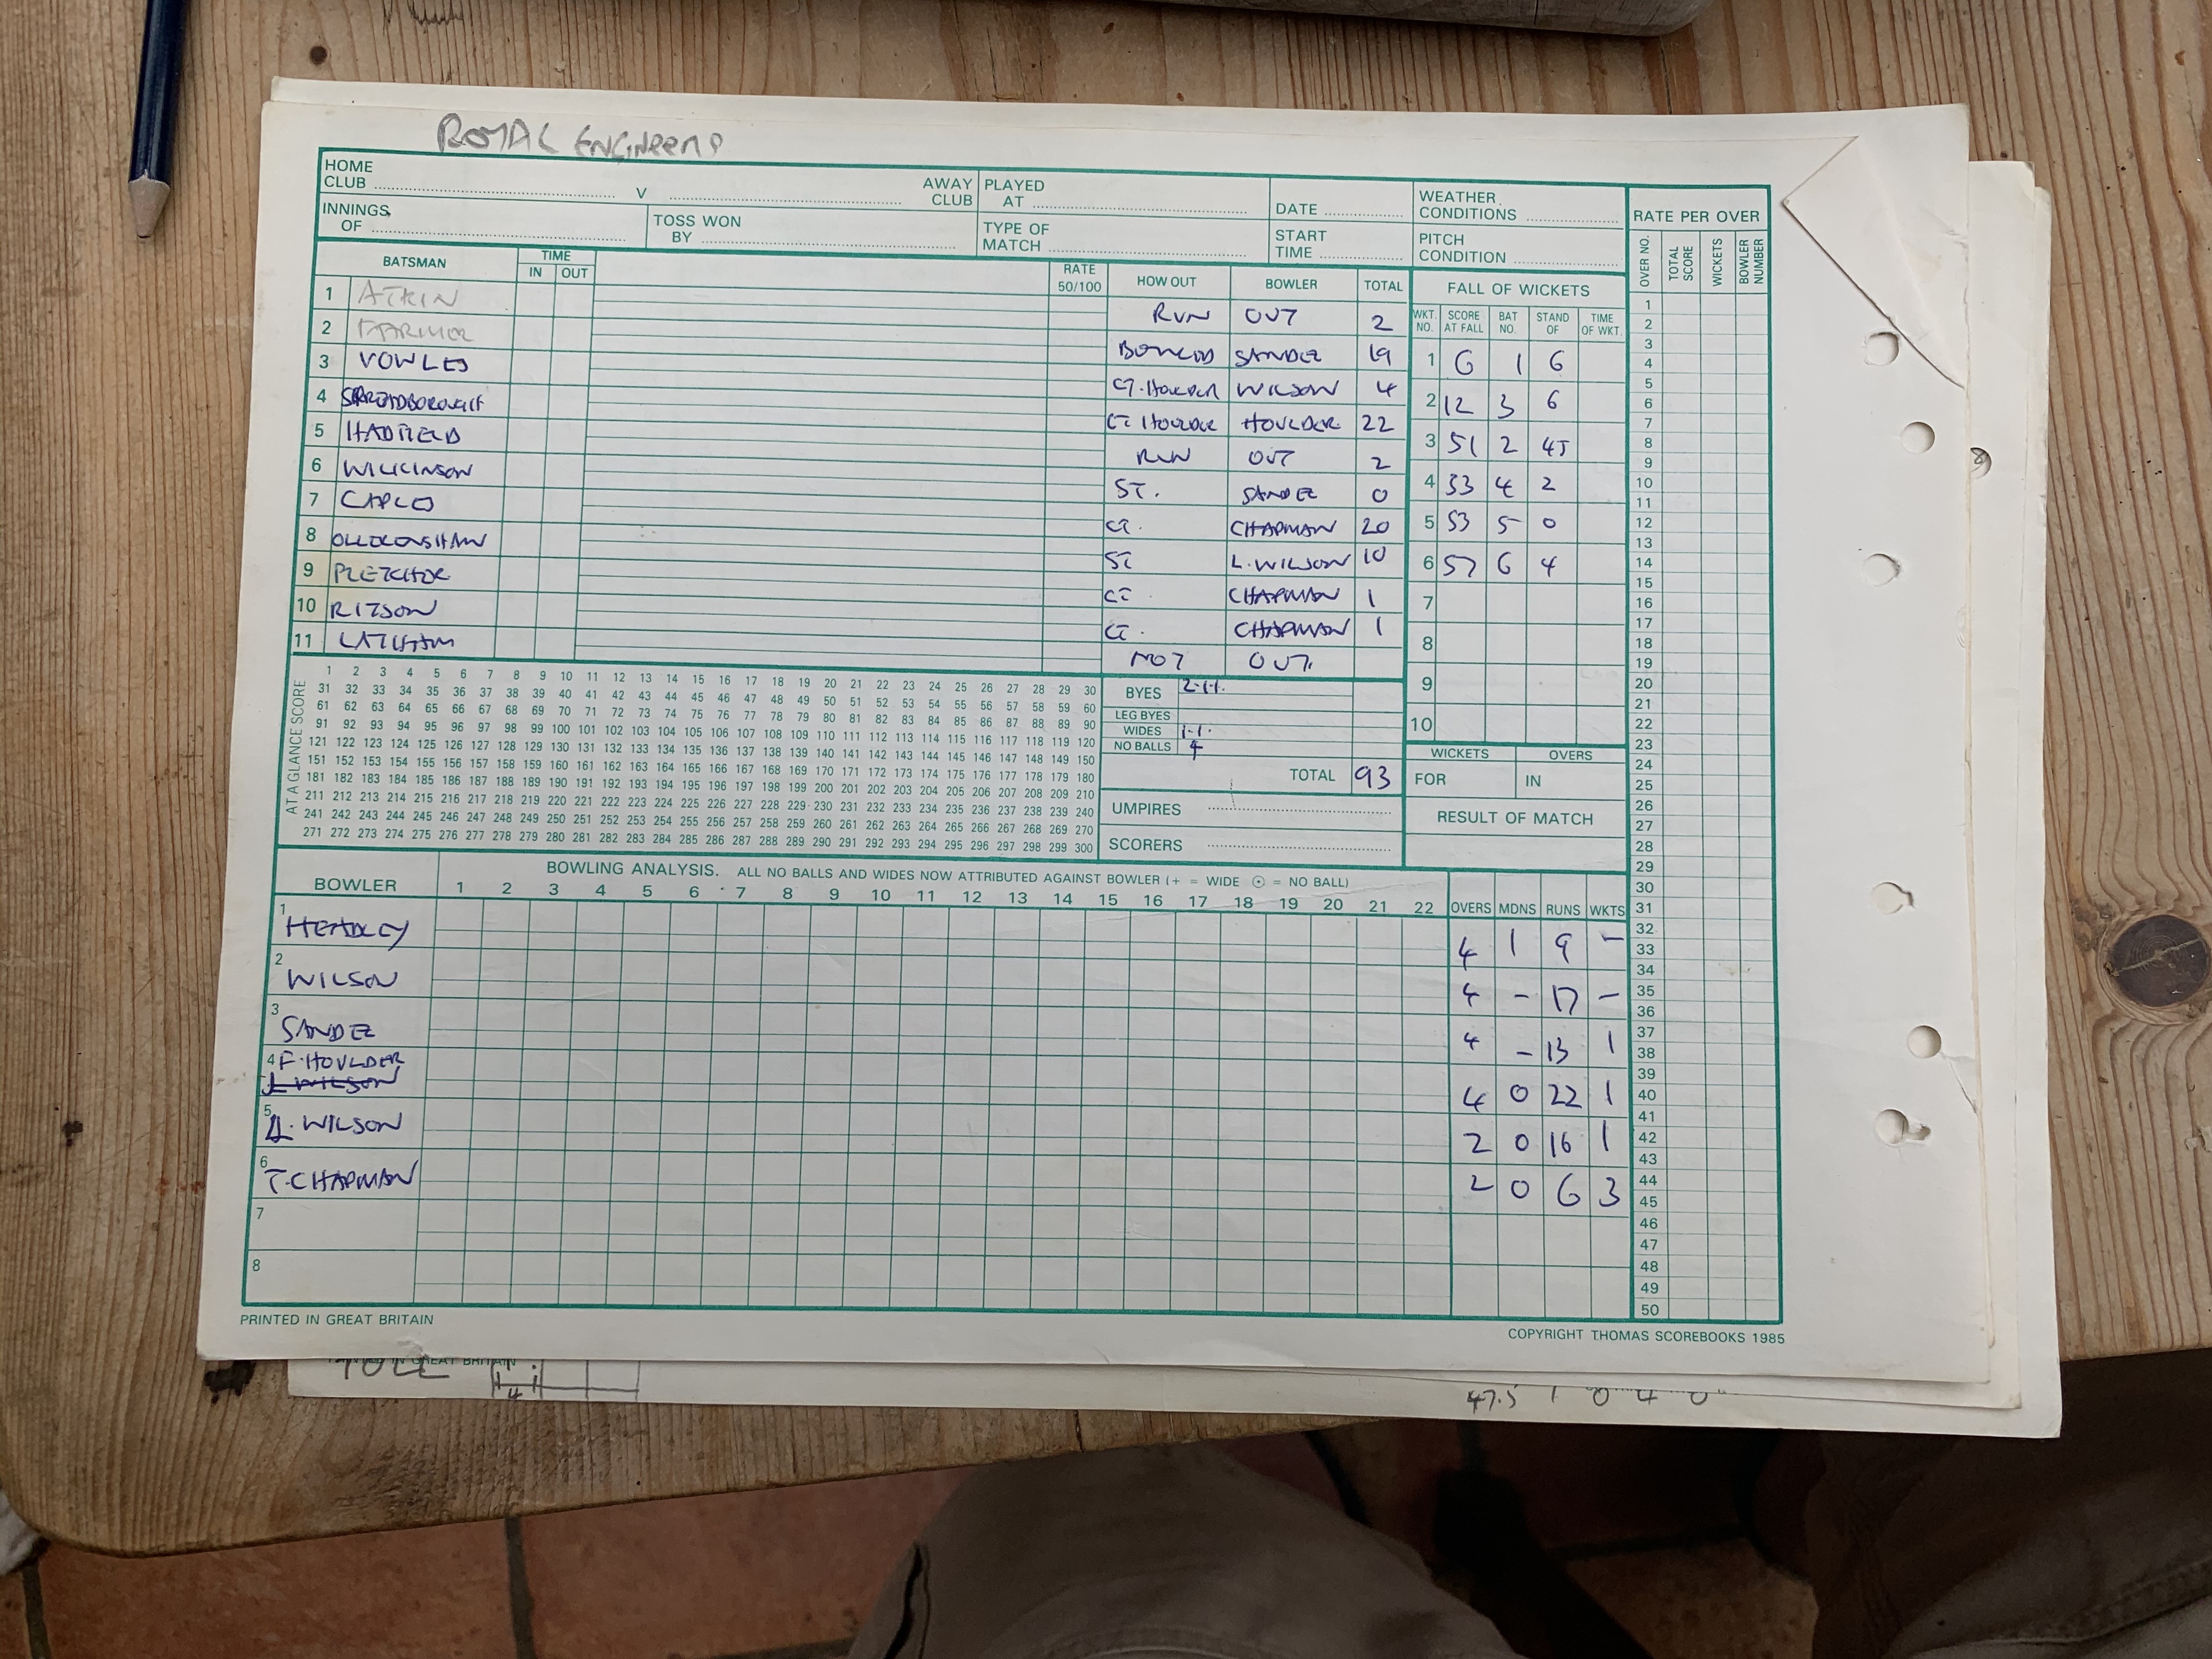 ROYAL ENGINEERS
HOME CLUB V AWAY CLUB PLAYED AT DATE WEATHER CONDITIONS RATE PER OVER
INNINGS OF TOSS WON BY TYPE OF MATCH START TIME PITCH CONDITION
OVER NO. TOTAL SCORE WICKETS BOWLER NUMBER
BATSMAN TIME IN OUT RATE 50/100 HOW OUT BOWLER TOTAL
1 ATKIN RUN OUT 2
2 FARMER BOWLED SANDEZ 19
3 VOWLES CT. HOULDER WILSON 4
4 SPREADBOROUGH CT HOULDER HOULDER 22
5 HADFIELD RUN OUT 2
6 WILKINSON ST. SANDEZ 0
7 CAPLES CT. CHAPMAN 20
8 OLLERENSHAW ST L. WILSON 10
9 FLETCHER CT. CHAPMAN 1
10 RITSON CT. CHAPMAN 1
11 LATHAM NOT OUT.
FALL OF WICKETS
WKT. NO. SCORE AT FALL BAT NO. STAND OF TIME OF WKT.
1 6 1 6
2 12 3 6
3 51 2 45
4 53 4 2
5 53 5 0
6 57 6 4
7
8
9
10
AT A GLANCE SCORE
1 2 3 4 5 6 7 8 9 10 11 12 13 14 15 16 17 18 19 20 21 22 23 24 25 26 27 28 29 30
31 32 33 34 35 36 37 38 39 40 41 42 43 44 45 46 47 48 49 50 51 52 53 54 55 56 57 58 59 60
61 62 63 64 65 66 67 68 69 70 71 72 73 74 75 76 77 78 79 80 81 82 83 84 85 86 87 88 89 90
91 92 93 94 95 96 97 98 99 100 101 102 103 104 105 106 107 108 109 110 111 112 113 114 115 116 117 118 119 120
121 122 123 124 125 126 127 128 129 130 131 132 133 134 135 136 137 138 139 140 141 142 143 144 145 146 147 148 149 150
151 152 153 154 155 156 157 158 159 160 161 162 163 164 165 166 167 168 169 170 171 172 173 174 175 176 177 178 179 180
181 182 183 184 185 186 187 188 189 190 191 192 193 194 195 196 197 198 199 200 201 202 203 204 205 206 207 208 209 210
211 212 213 214 215 216 217 218 219 220 221 222 223 224 225 226 227 228 229 230 231 232 233 234 235 236 237 238 239 240
241 242 243 244 245 246 247 248 249 250 251 252 253 254 255 256 257 258 259 260 261 262 263 264 265 266 267 268 269 270
271 272 273 274 275 276 277 278 279 280 281 282 283 284 285 286 287 288 289 290 291 292 293 294 295 296 297 298 299 300
BYES 2.1.1.
LEG BYES
WIDES 1.1.
NO BALLS 4
TOTAL 93
UMPIRES
SCORERS
WICKETS OVERS
FOR IN
RESULT OF MATCH
BOWLER BOWLING ANALYSIS. ALL NO BALLS AND WIDES NOW ATTRIBUTED AGAINST BOWLER (+ = WIDE ⊙ = NO BALL)
1 2 3 4 5 6 7 8 9 10 11 12 13 14 15 16 17 18 19 20 21 22 OVERS MDNS RUNS WKTS
1 HEADLEY 4 1 9 -
2 WILSON 4 - 17 -
3 SANDEZ 4 - 13 1
4 F. HOULDER 4 0 22 1
L WILSON
5 L. WILSON 2 0 16 1
6 T. CHAPMAN 2 0 6 3
7
8
1
2
3
4
5
6
7
8
9
10
11
12
13
14
15
16
17
18
19
20
21
22
23
24
25
26
27
28
29
30
31
32
33
34
35
36
37
38
39
40
41
42
43
44
45
46
47
48
49
50
PRINTED IN GREAT BRITAIN COPYRIGHT THOMAS SCOREBOOKS 1985
IN GREAT BRITAIN
47.5